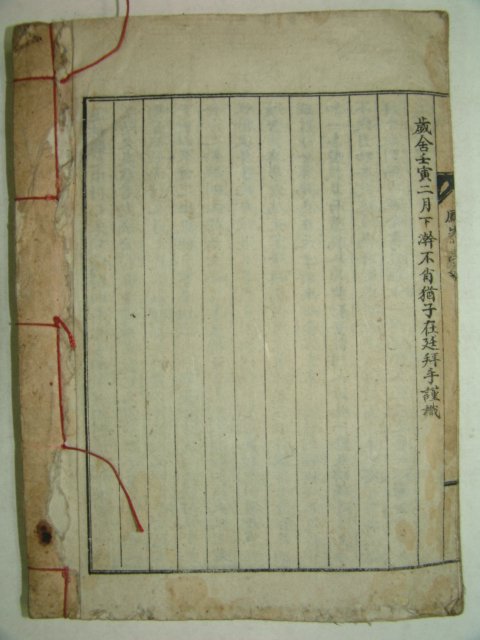 歲舍壬寅二月下澣不肖猶子在廷拜手謹識